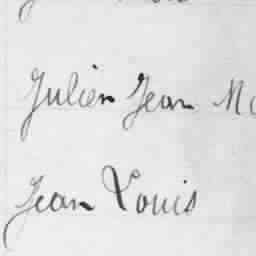 Julien Jean
Jean Louis